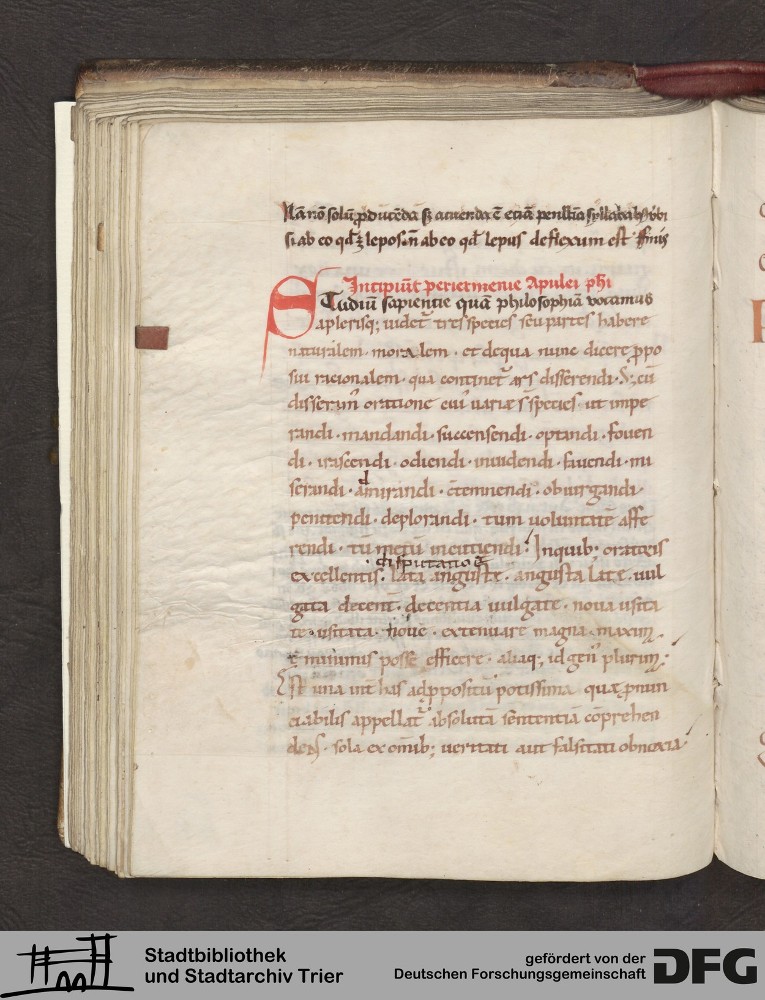 Nā nō solū ꝓducēda sꝫ acuenda ē etiā penultīa syllaba ubi
si ab eo qđ ē lepos n̄ ab eo qđ lepus deflexum est finis
Incipiūt periermenie Apulei phi
STudiū sapientie quā philosophiā vocamus
aplerisq; uidet᷑ tres species seu partes habere
naturalem · moralem · et dequa nunc dicere ꝓpo
sui racionalem · qua continet᷑ ars disserendi · & cū
disseram᷑ oratione cui᷒ variae s̄ species · ut impe
randi · mandandi · succensendi · optandi · foven
di · irascendi · odiendi · inuidendi · fauendi · mi
serandi · admirandi · ctemnendi · obiurgandi ·
penitendi · deplorandi · tum uoluntatē affe
rendi · tū metū incutiendi · Inquib; oratoris
disputatio ē
excellentis · lata anguste · angusta late · uul
gata decent᷑ · decentia uulgate · noua usita
te · usitata · noue · extenuare magna · maxim
e minimis posse efficere · aliaq; id gen᷒ plurim
Est una int̄ has adpropositū potissima quae ꝓnun
ciabilis appellat᷑ absolutā sententiā cōprehen
dens · sola ex omīb; ueritati aut falsitati obnoxia
Stadtbibliothek
und Stadtarchiv Trier
gefördert von der
Deutschen Forschungsgemeinschaft
DFG